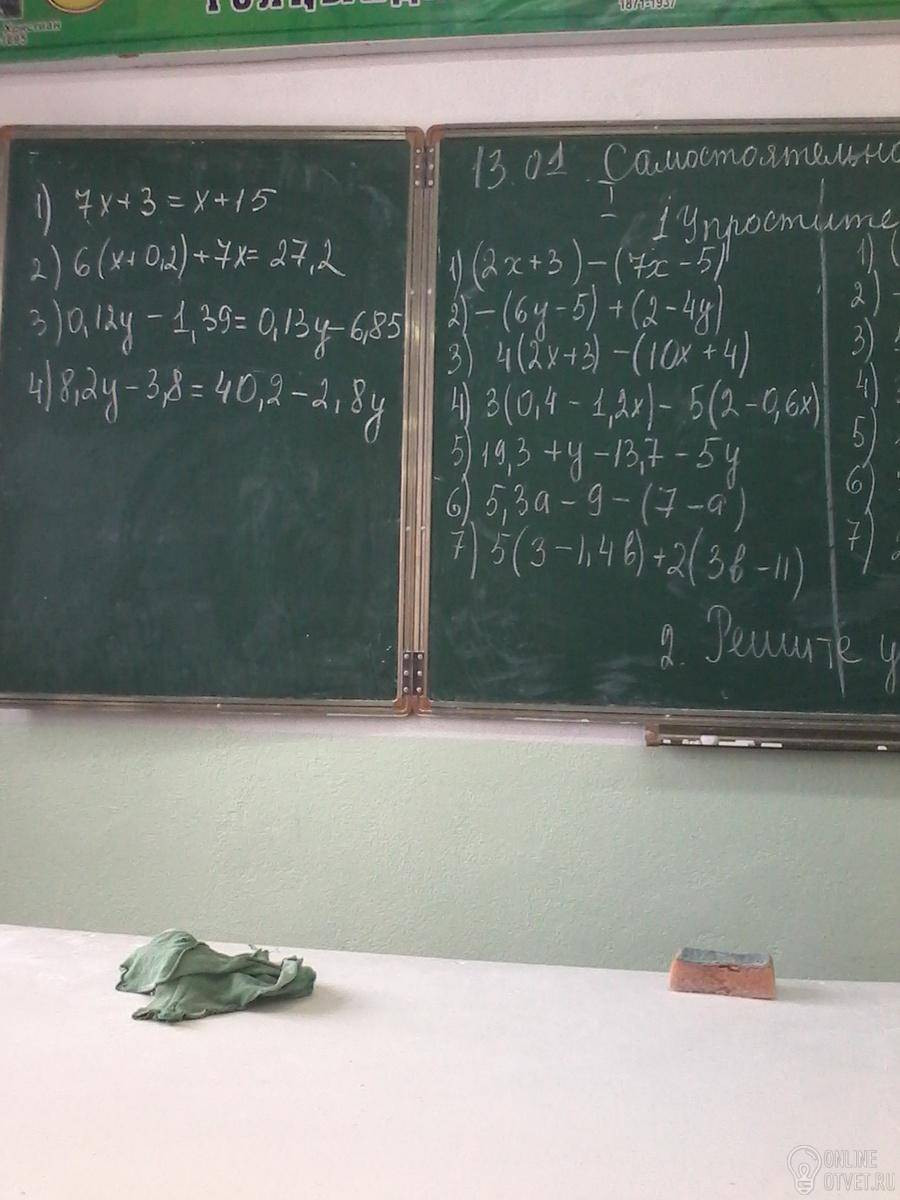 1871-1937
1885
1) 7x+3=x+15
2) 6(x+0,2)+7x=27,2
3) 0,12y-1,39=0,13y-6,85
4) 8,2y-3,8=40,2-2,8y
13.01 Самостоятельно
I
1 Упростите
1) (2x+3)-(7x-5)
2) -(6y-5)+(2-4y)
3) 4(2x+3)-(10x+4)
4) 3(0,4-1,2x)-5(2-0,6x)
5) 19,3+y-13,7-5y
6) 5,3a-9-(7-a)
7) 5(3-1,4в)+2(3в-11)
2. Решите у
1) (
2) -
3)
4)
5)
6)
7)
ONLINE
OTVET.RU